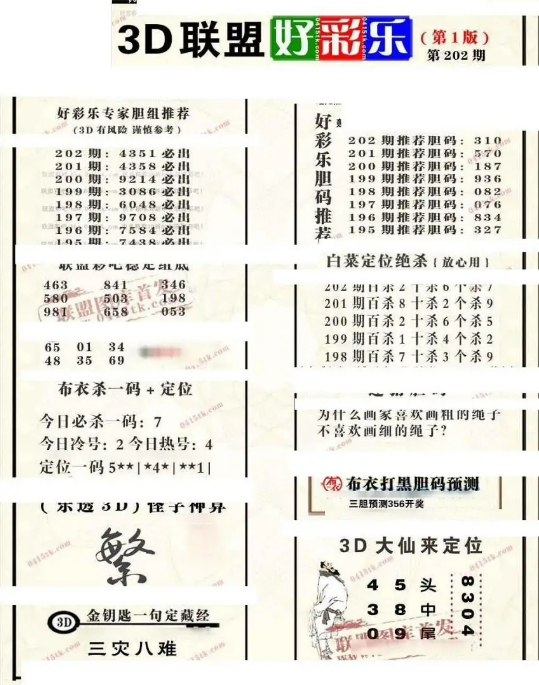 3D联盟好彩乐
(第1版)
第202期
好彩乐专家胆组推荐
(3D有风险 谨慎参考)
202期: 4351必出
201期: 4358必出
200期: 9214必出
199期: 3086必出
198期: 6048必出
197期: 9708必出
196期: 7584必出
195期: 7438必出
联盟彩吧稳定组底
463 841 346
580 503 198
981 658 053
65 01 34
48 35 69
布衣杀一码+定位
今日必杀一码: 7
今日冷号: 2 今日热号: 4
定位一码5**|*4*|**1|
(乐透3D)怪字神算
繁
3D 金钥匙一句定藏经
三灾八难
好彩乐胆码推荐
202期推荐胆码: 310
201期推荐胆码: 570
200期推荐胆码: 187
199期推荐胆码: 936
198期推荐胆码: 082
197期推荐胆码: 076
196期推荐胆码: 834
195期推荐胆码: 327
白菜定位绝杀(放心用)
202期百杀2十杀6个杀7
201期百杀8十杀2个杀9
200期百杀2十杀6个杀5
199期百杀1十杀4个杀2
198期百杀7十杀3个杀9
为什么画家喜欢画粗的绳子
不喜欢画细的绳子?
布衣打黑胆码预测
三胆预测356开奖
3D大仙来定位
45头
38中
09尾
8304
联盟图库首发
0415tk.com